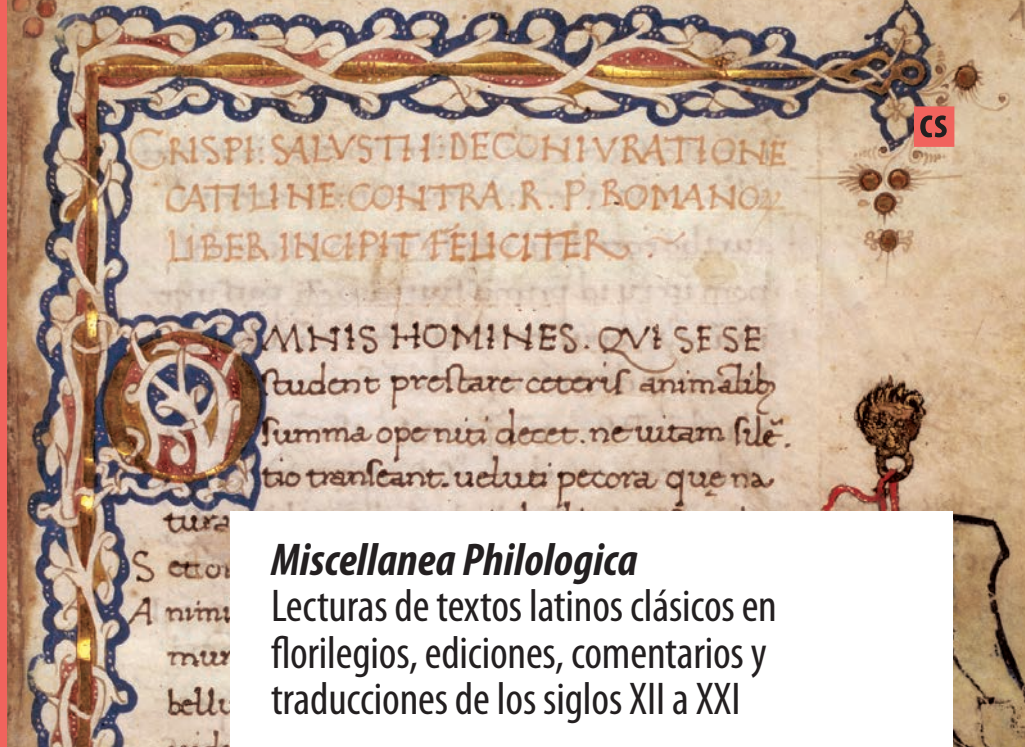 CRISPI: SALVSTII: DECONIVRATIONE
CATILINE: CONTRA. R. P. ROMANOꝝ
LIBER INCIPIT FELICITER
OMNIS HOMINES. QVI SE SE
ſtudent preſtare ceteriſ animalibꝫ
ſumma ope niti decet. ne uitam ſilē.
tio tranſeant. ueluti pecora que na
tura
S
A nimu
mur
bellu
CS
Miscellanea Philologica
Lecturas de textos latinos clásicos en
florilegios, ediciones, comentarios y
traducciones de los siglos XII a XXI